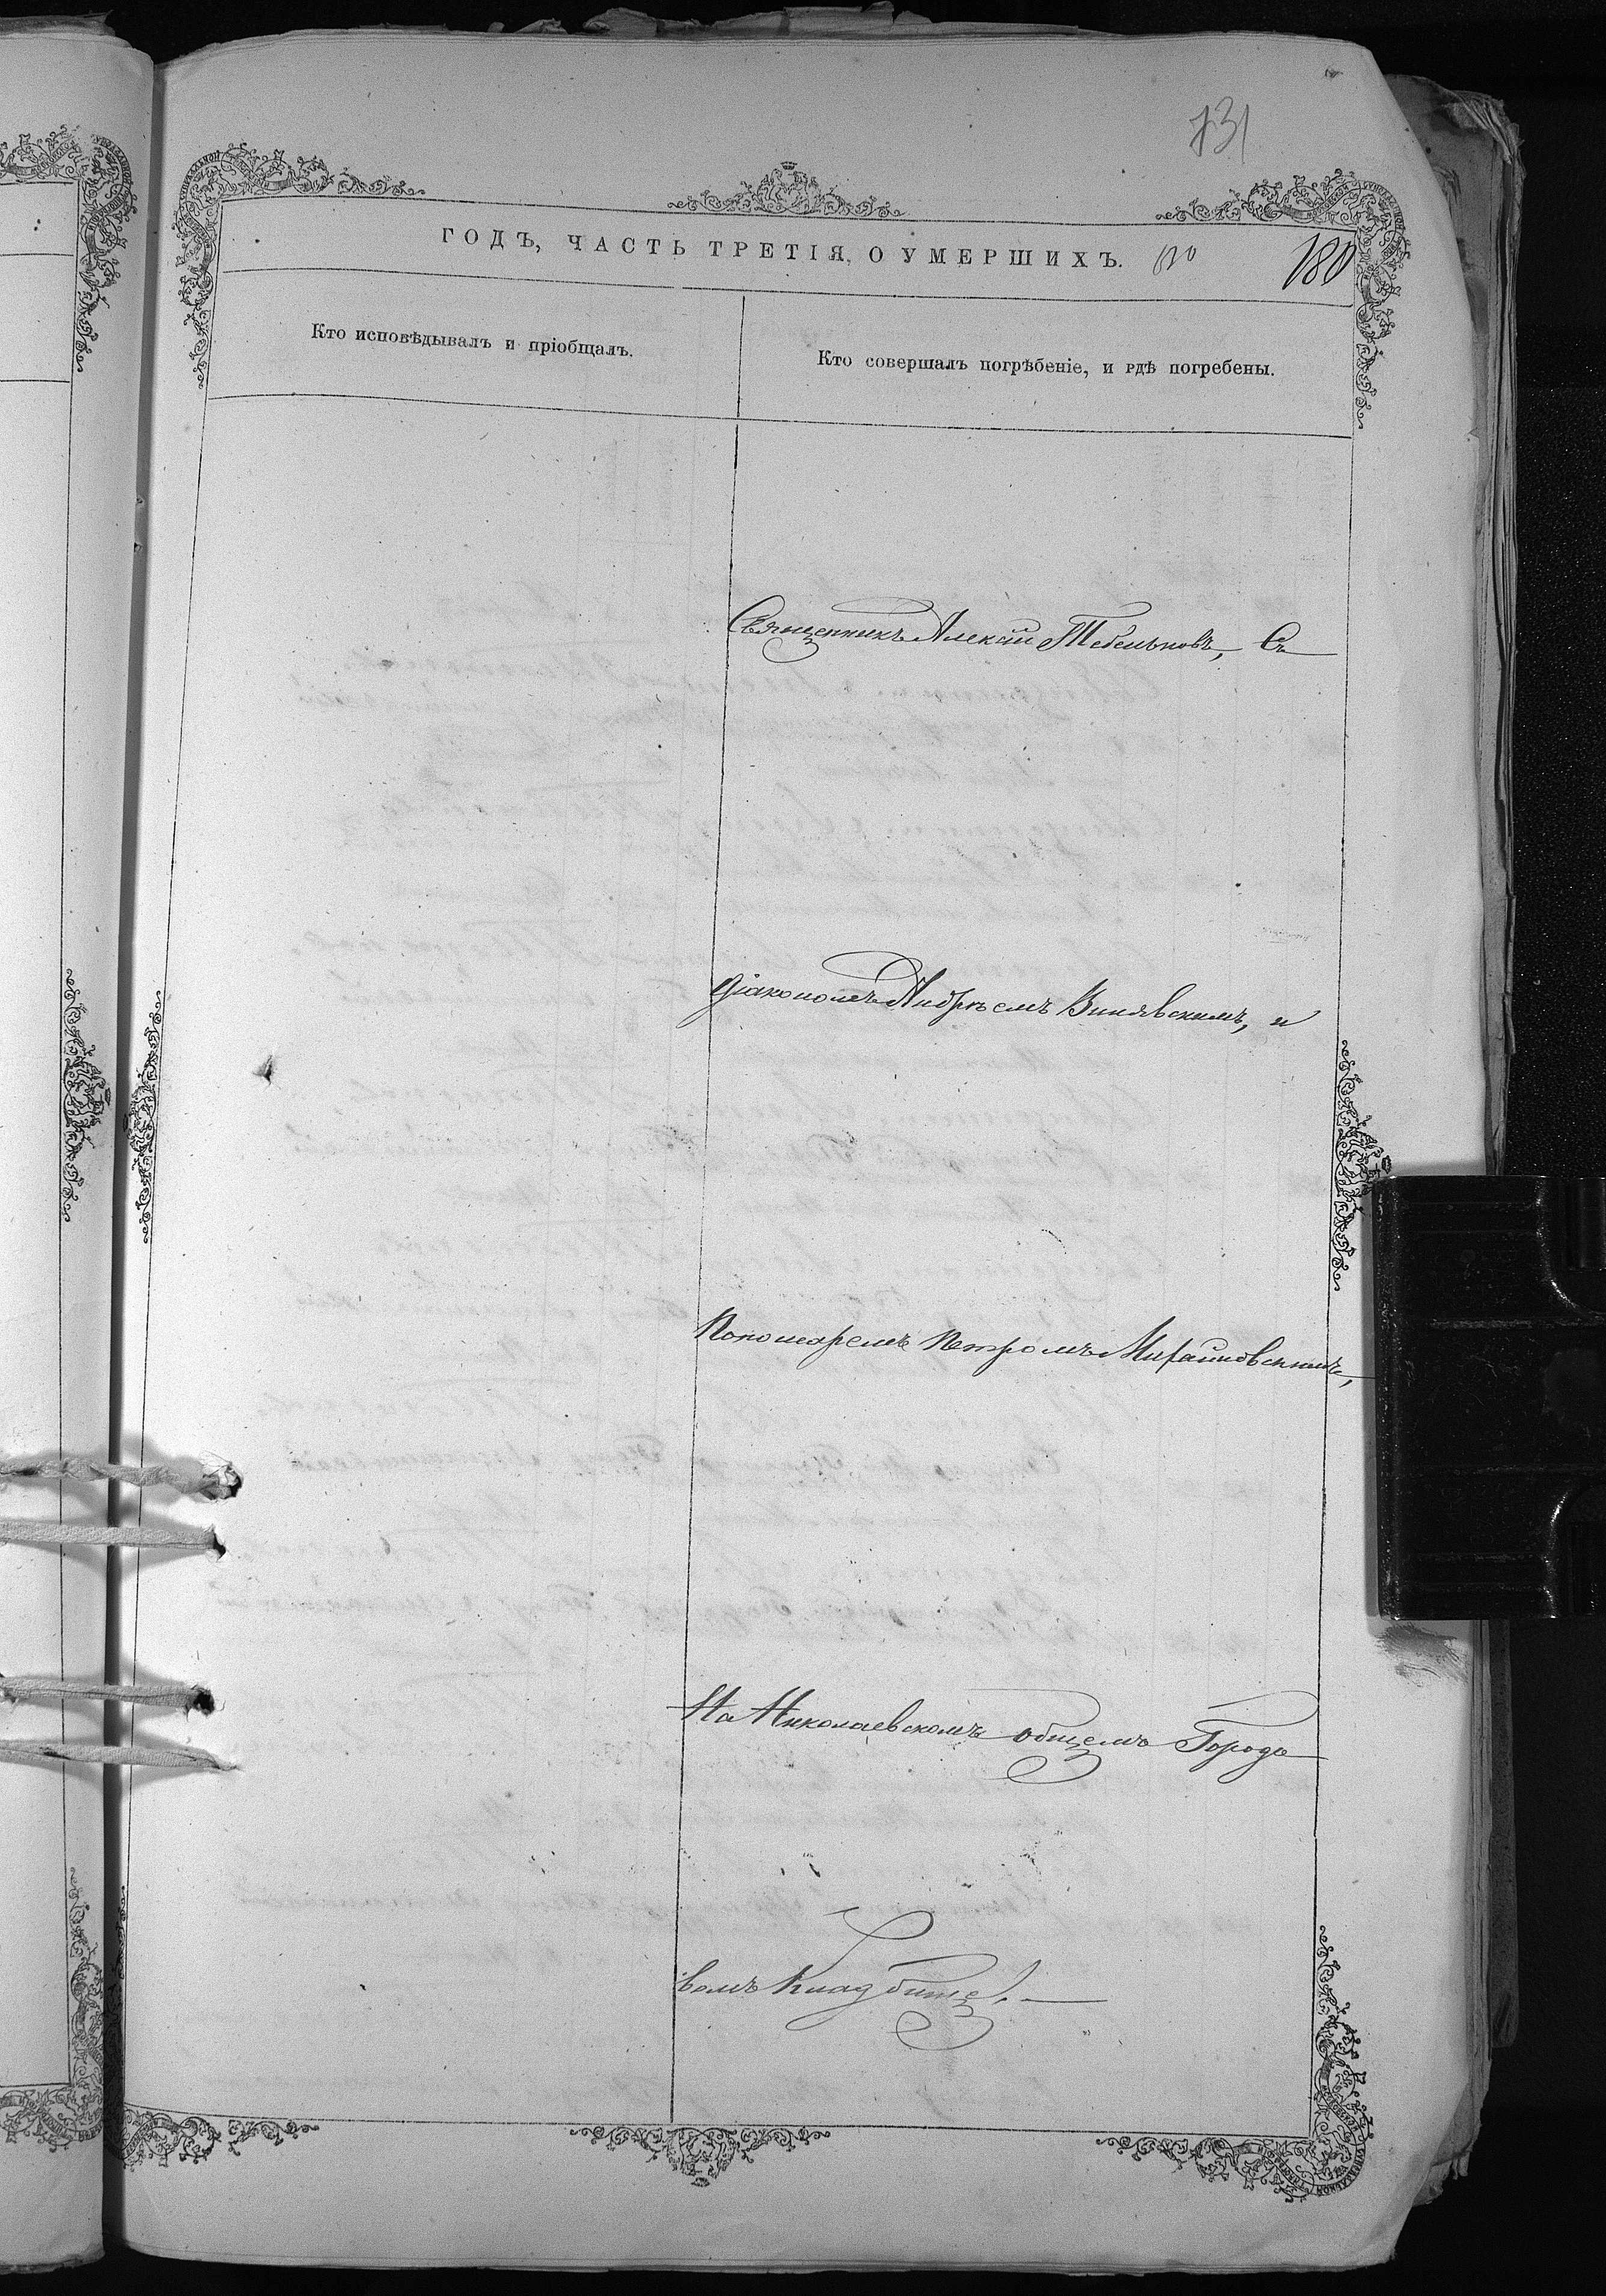 731
ГОДЪ, ЧАСТЬ ТРЕТІЯ, О УМЕРШИХЪ.
180
Кто исповѣдывалъ и пріобщалъ.
Кто совершалъ погрѣбеніе, и гдѣ погребены.
Священникъ Алексій Тебеньковъ, Съ
діакономъ Андреемъ Винявскимъ, и
Пономаремъ Петромъ
На Николаевскомъ общемъ Городо
вомъ Кладбище. —